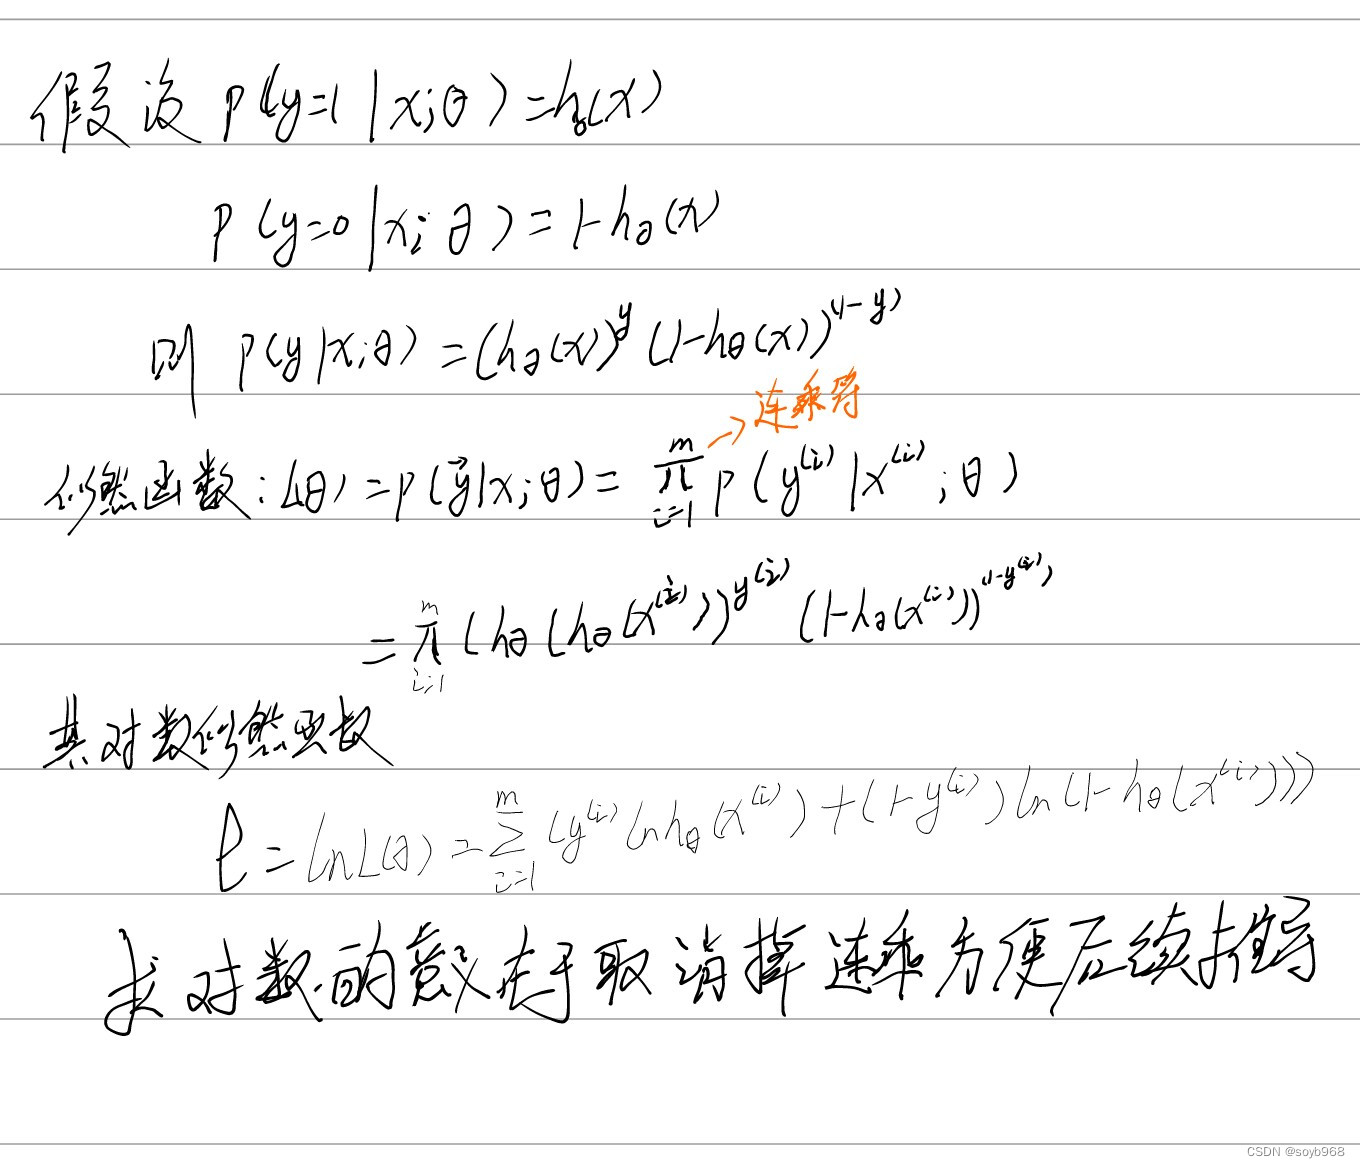 假设 P(y=1|x;θ)=hθ(x)
P(y=0|x;θ)=1-hθ(x)
则 P(y|x;θ)=(hθ(x))^y (1-hθ(x))^(1-y)
→连乘符
似然函数：L(θ)=P(y⃗|x;θ)=∏_{i=1}^{m} P(y^(i)|x^(i);θ)
=∏_{i=1}^{m} (hθ(hθ(x^(i)))^y^(i) (1-hθ(x^(i)))^(1-y^(i))
其对数似然函数
ℓ=lnL(θ)=∑_{i=1}^{m} (y^(i) ln hθ(x^(i))+(1-y^(i)) ln(1-hθ(x^(i))))
求对数的意义在于取消掉连乘方便后续推导
CSDN @soyb968